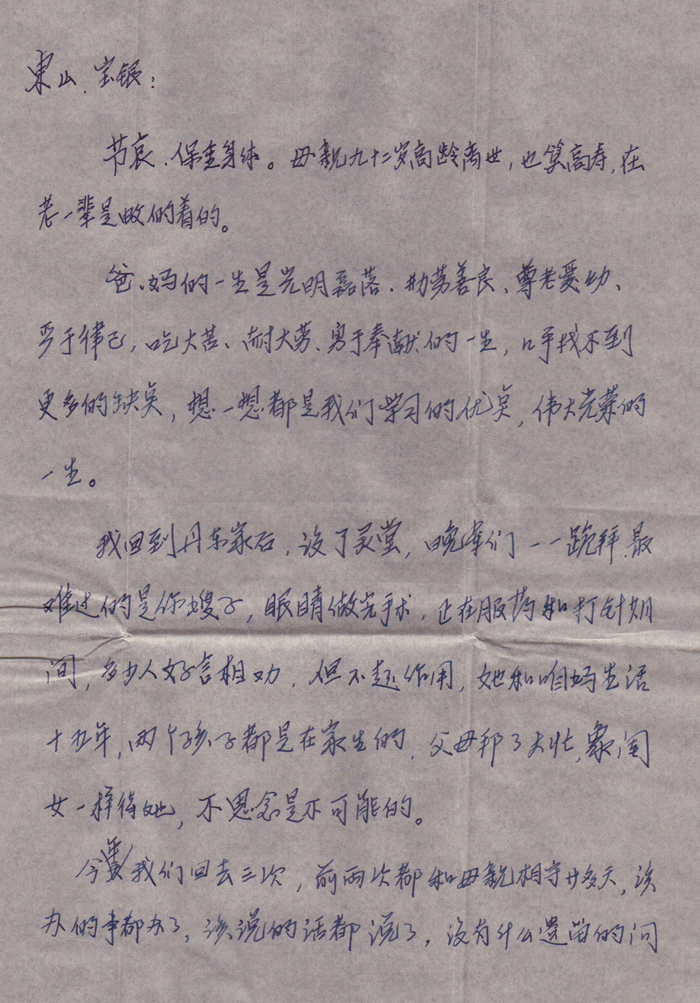 東山、宝银：
节哀、保重身体。母親九十二岁高龄离世，也算高寿，在
老一辈是数的着的。
爸、妈的一生是光明磊落、勤劳善良、尊老爱幼、
严于律己，吃大苦、耐大劳、勇于奉献的一生，几乎找不到
更多的缺点，想一想都是我们学习的优点，伟大光荣的
一生。
我回到丹东家后，设了灵堂，晚辈们一一跪拜，最
难过的是你嫂子，眼睛做完手术，正在服药和打针期
间，多少人好言相劝，但不起作用，她和咱妈生活
十五年，两个孩子都是在家生的，父母帮了大忙，象闺
女一样待她，不思念是不可能的。
今年我们回去三次，前两次都和母親相守廿多天，该
办的事都办了，该说的话都说了，没有什么遗留的问